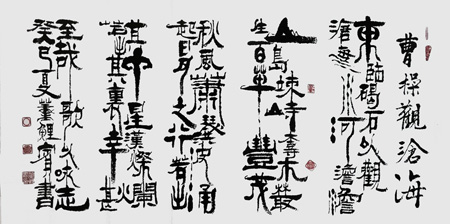 曹操觀滄海
東臨碣石以觀
滄海水何澹澹
山島竦峙樹木叢
生百草豐茂
秋風蕭瑟洪波涌
起日月之行若出
其中星漢燦爛
若出其裏幸甚
至哉歌以詠志
癸巳夏董書